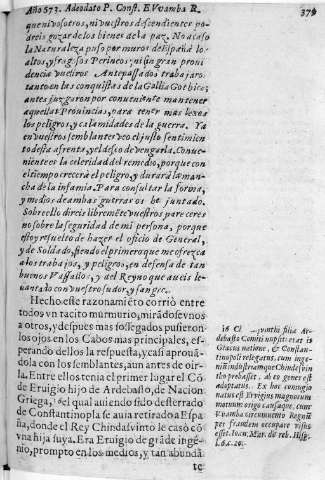 Año 673. Adeodato P. Const. E. Vvamba R. 379
que ni vosotros, ni vuestros descendientes po-
dreis gozar de los bienes de la paz. No acaso
la Naturaleza puso por muros de España lo
altos, y fragosos Perineos; ni sin gran proui
dencia vuestros Antepassados trabajaro
tanto en las conquistas de la Gallia Gothica;
antes juzgaron por conueniente mantener
aquellas Prouincias, para tener mas lexos
los peligros, y calamidades de la guerra. Ya
en vuestros semblantes veo el justo sentimien
to desta afrenta, y el deseo de vengarla. Conue-
niente es la celeridad del remedio, porque con
el tiempo crecerà el peligro, y durarà la man-
cha de la infamia. Para consultar la forma,
y medios de ambas guerras os he juntado.
Sobre ello direis libremẽte vuestros pareceres
no sobre la seguridad de mi persona, porque
estoy resuelto de hazer el oficio de General,
y de Soldado, siendo el primero que me ofrezca
a los trabajos, y peligros, en defensa de tan
buenos Vassallos, y del Reyno que aueis le-
uantado con vuestro sudor, y sangre.
Hecho este razonamiẽto corriò entre
todos vn tacito murmurio, mirãdose vnos
a otros, y despues mas sossegados pusieron
los ojos en los Cabos mas principales, es-
perando dellos la respuesta, y casi aproua-
dola con los semblantes, aun antes de oir-
la. Entre ellos tenia el primer lugar el Cõ-
de Eruigio hijo de Ardebasto, de Nacion
Griega, el qual auiendo sido desterrado
de Constantinopla se auia retirado a Espa
ña, donde el Rey Chindasvinto le casò cõ
vna hija suya. Era Eruigio de grãde inge-
nio, prompto en los medios, y tan abundã
te
16 Ardebasto Comiti nuptũi erat is
Græcus natione, & Constan-
tinopoli relegatus, cum inge-
nii industriamque Chindesvin
to probasset, ab eo gener est
adoptatus. Ex hoc coniugio
natus est Ervigius magnorum
motuum origo causaque, cum
Vvamba circumuento Regnũ
per fraudem occupare visus
esset. Ioan. Mar. de reb. Hisp.
l. 6.